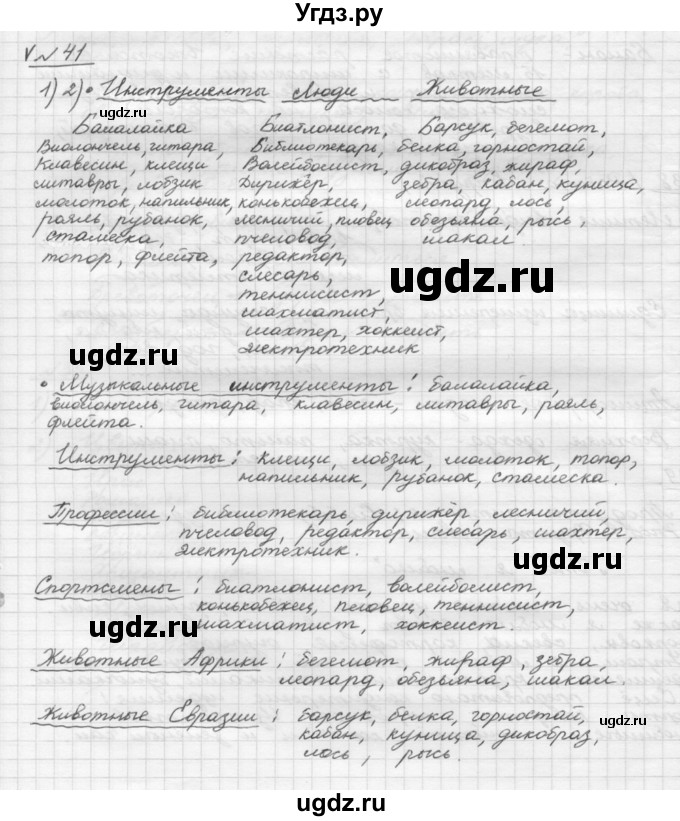 Угдз.ру
V № 41
1) 2) • Инструменты Люди Животные
Балалайка Биатлонист, Барсук, бегемот,
Виолончель, гитара, Библиотекарь, белка, горностай,
Клавесин, клещи Волейболист, дикобраз, жираф,
литавры, лобзик Дирижёр, зебра, кабан, куница,
молоток, напильник, конькобежец, леопард, лось,
рояль, рубанок, лесничий, пловец обезьяна, рысь,
стамеска, пчеловод, шакал.
топор, флейта, редактор,
слесарь,
теннисист,
шахматист,
шахтёр, хоккеист,
электротехник
ugdz.ru
ugdz.ru
• Музыкальные инструменты: балалайка,
виолончель, гитара, клавесин, литавры, рояль,
флейта.
Инструменты: клещи, лобзик, молоток, топор,
напильник, рубанок, стамеска.
Профессии: библиотекарь, дирижёр, лесничий,
пчеловод, редактор, слесарь, шахтёр,
электротехник.
ugdz.ru
Спортсмены: биатлонист, волейболист,
конькобежец, пловец, теннисист,
шахматист, хоккеист.
ugdz.ru
Животные Африки: бегемот, жираф, зебра,
леопард, обезьяна, шакал.
Животные Евразии: барсук, белка, горностай,
кабан, куница, дикобраз,
лось, рысь.
ugdz.ru
ugdz.ru